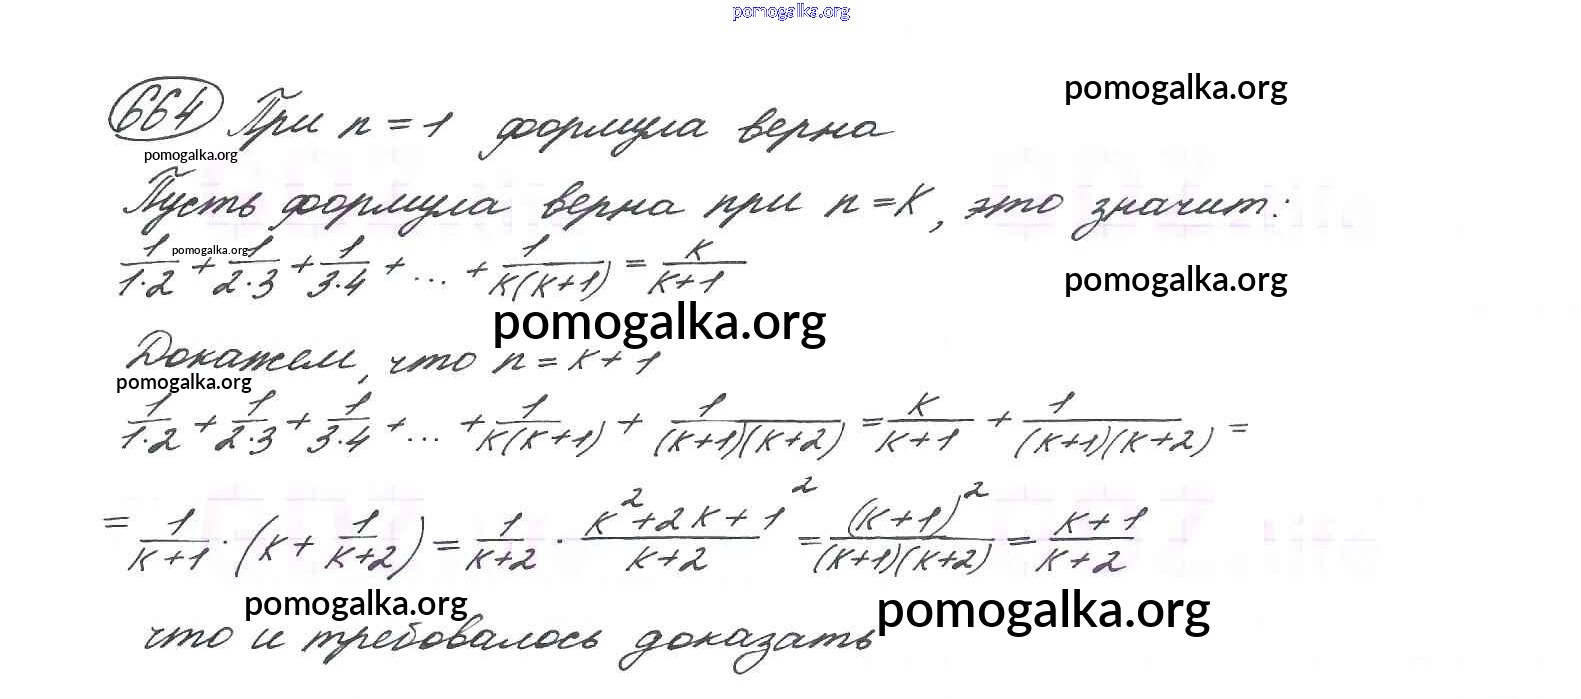 pomogalka.org
pomogalka.org
664 При n = 1 формула верна
pomogalka.org
Пусть формула верна при n = K, это значит:
pomogalka.org
1/(1·2) + 1/(2·3) + 1/(3·4) + ... + 1/(K(K+1)) = K/(K+1)
pomogalka.org
pomogalka.org
Докажем, что n = K + 1
pomogalka.org
1/(1·2) + 1/(2·3) + 1/(3·4) + ... + 1/(K(K+1)) + 1/((K+1)(K+2)) = K/(K+1) + 1/((K+1)(K+2)) =
= 1/(K+1) · (K + 1/(K+2)) = 1/(K+2) · (K²+2K+1²)/(K+2) = (K+1)²/((K+1)(K+2)) = (K+1)/(K+2)
pomogalka.org
pomogalka.org
что и требовалось доказать